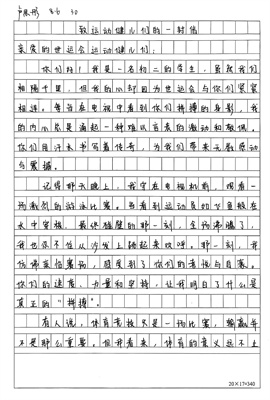 致运动健儿们的一封信
亲爱的世运会运动健儿们：
你们好！我是一名初二的学生，虽然我们
相隔千里，但我的心却因为世运会与你们紧紧
相连。每当在电视中看到你们拼搏的身影，我
的内心总是涌起一种难以言表的激动和敬佩。
你们用汗水书写着传奇，为我们带来无数感动
与震撼。
记得那天晚上，我守在电视机前，观看一
场激烈的游泳比赛。当看到运动员如飞鱼般在
水中穿梭，最终触壁的那一刻，全场沸腾了，
我也忍不住从沙发上跳起来欢呼。那一刻，我
仿佛亲临赛场，感受到了你们的喜悦与自豪。
你们的速度、力量和坚持，让我明白了什么是
真正的“拼搏”。
有人说，体育竞技只是一场比赛，输赢并
不是那么重要。但我看来，体育的意义远不止
20×17=340